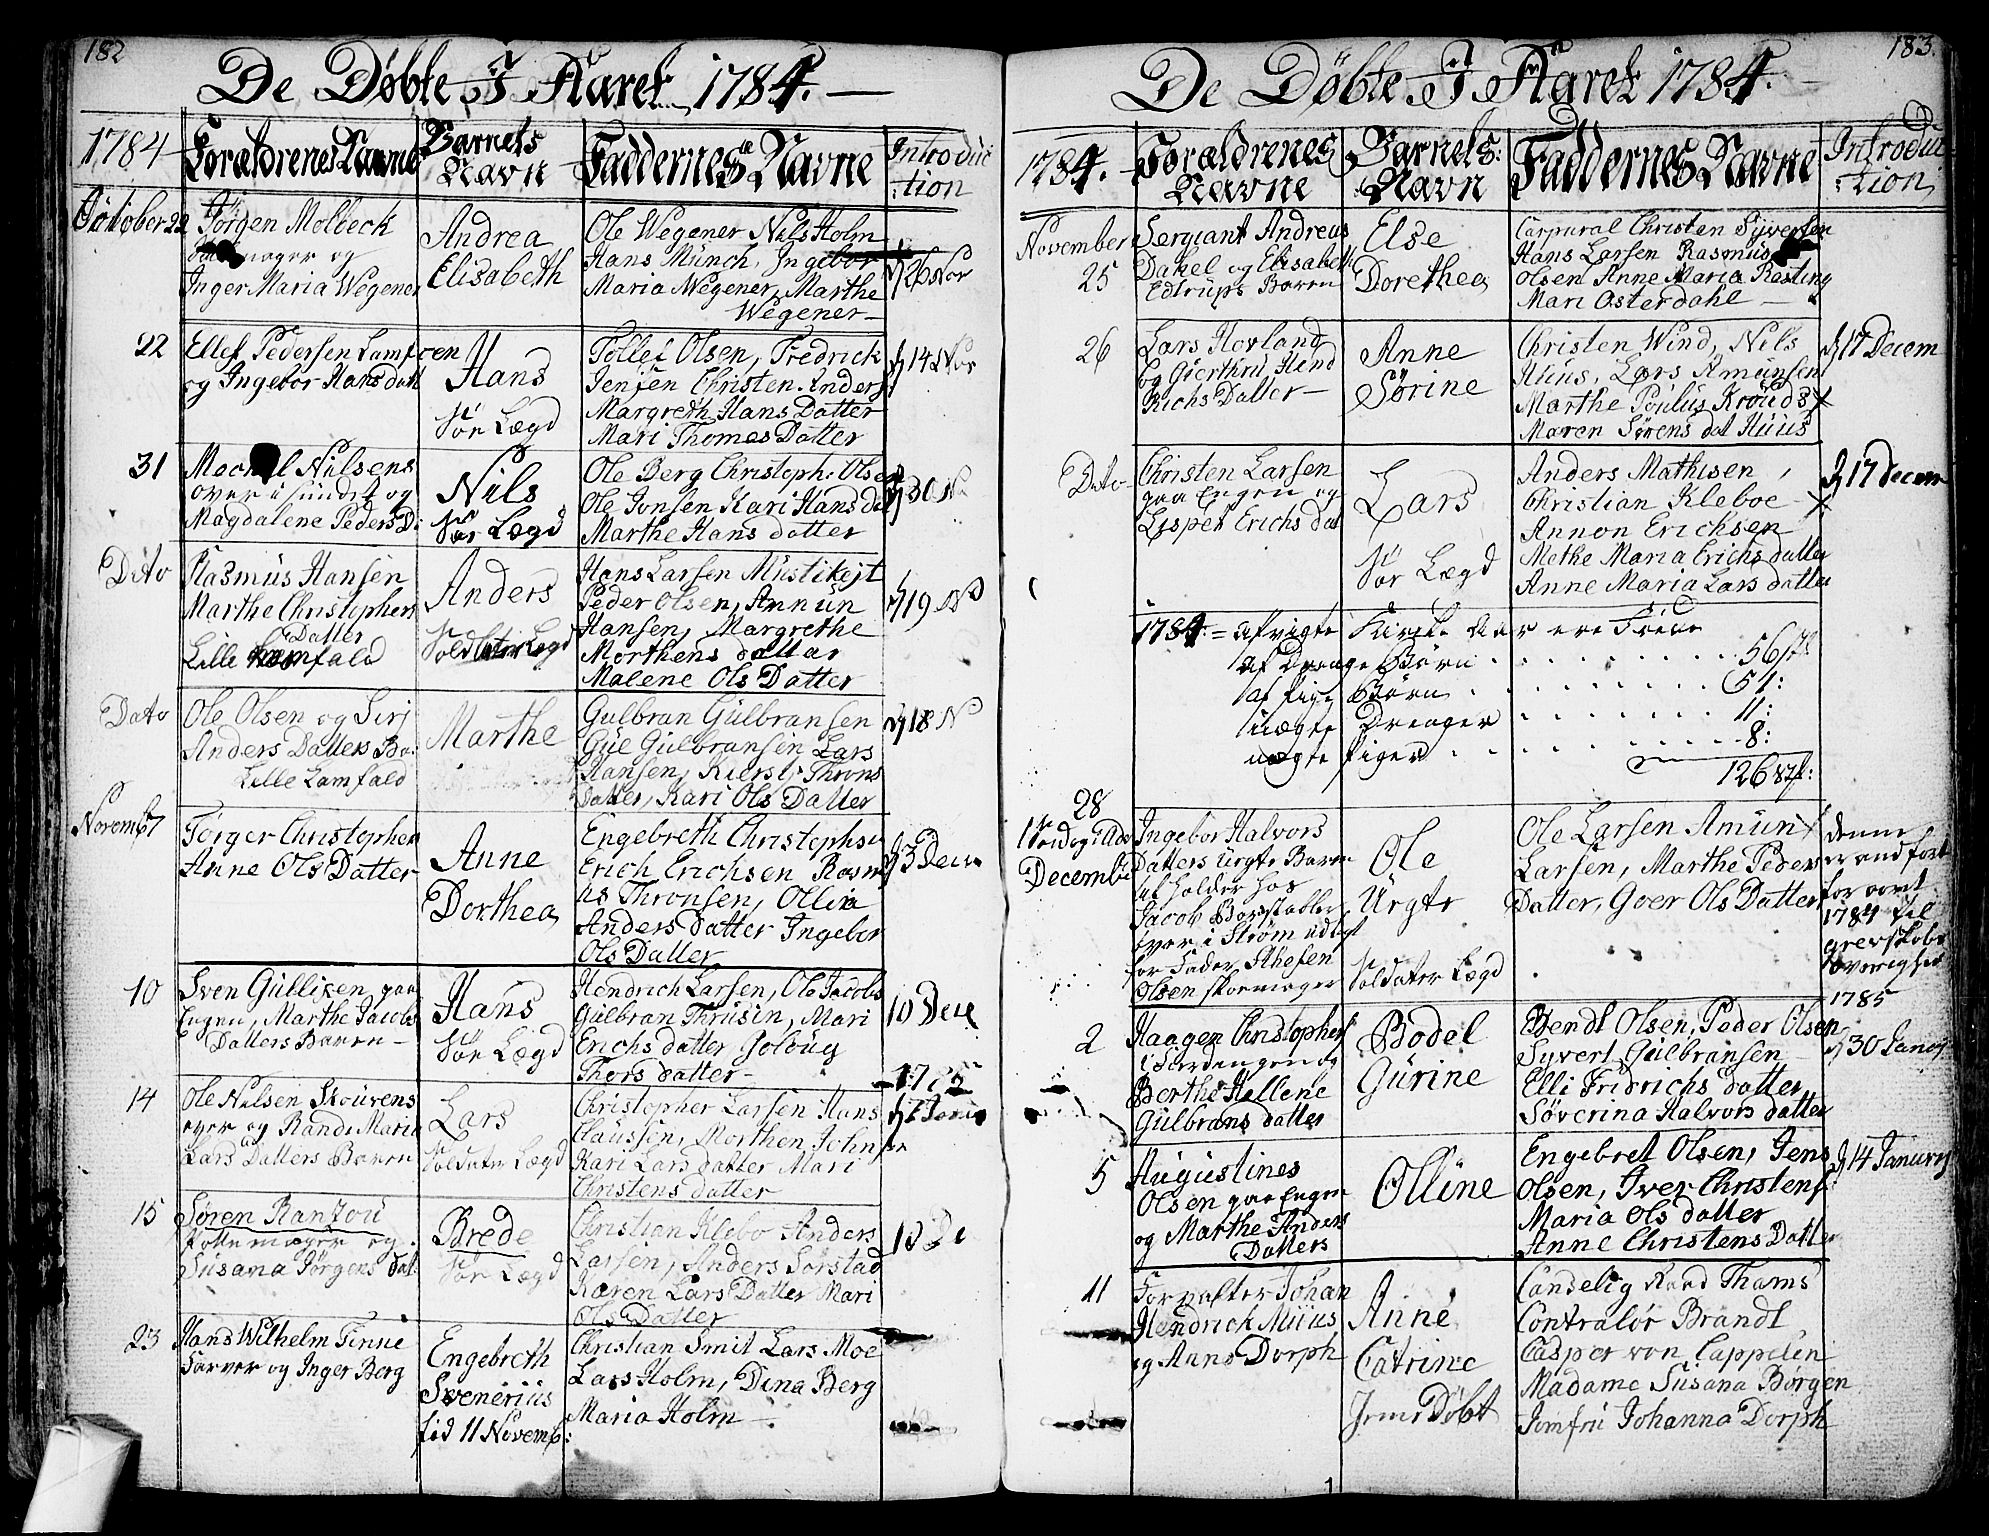 182
De Døbte I Aaret 1784.
1784
Forældrenes Navne
Barnets
Navn
Faddernes Navne
Introduc
:tion
October 22
Jørgen Molbeck
mager og
Inger Maria Wegener
Andrea
Elisabeth
Ole Wegener Nils Holm
Hans Münch, Ingebor
Maria Wegener, Marthe
Wegener
26 Nov
22
Ellef Pedersen Lamf
og Ingebor Hans datt
Hans
Sør Lægd
Tollef Olsen, Fredrick
Jensen Christen Anders
Margreth Hans Datter
Mari Thomes Datter
14 Nov
31
Nilsens
over i sundet og
Magdalene Peders D:
Nils
Sør Lægd
Ole Berg Christoph: Olsen
Ole Jonsen Kari Hans dat
Marthe Hans datter
30 N
Dito
Rasmus Hansen
Marthe Christophers
Datter
Lille Lamfald
Anders
Soldater Lægd
Hans Larsen Mustikejt
Peder Olsen, Annün
Hansen, Margrethe
Morthens dattar
Malene Ols Datter
19 N
Dato
Ole Olsen og Sirj
Anders Datters Ba:
Lille Lamfald
Marthe
Gulbran Gülbransen
Gül Gülbransen Lars
Hansen, Kiersty Throns
Datter, Kari Ols Datter
18 N
Novemb 7
Torger Christophers
Anne Ols Datter
Anne
Dorthea
Engebreth Christophs
Erich Erichsen Rasm
us Thronsen, Ollia
Anders Datter Ingebor
Ols Datter
3 Dece
10
Sven Gülliksen paa
Engen, Marthe Jacobs
Datters Baren
Hans
Sør Lægd
Hendrich Larsen, Ole Jacobs
Gülbran Thrusen, Mari
Erichs datter Golöug
Thors datter
10 Dece
14
Ole Nilsen Skouvens
eyer og Randi Maria
Lars Datters Baren
Lars
Soldater Lægd
Christopher Larsen Hans
Claussen, Morthen John
sen
Kari Lars datter Mari
Christens datter
1785
15
Søren Rantzou
Pottemager og
Susana Jørgens dat:
Brede
Sør Lægd
Christian Klebo Anders
Larsen, Anders Sørstad
Karen Lars Datter Mari
Ols Datter
10 De
23
Hans Wilhelm Tinne
Farver og Inger Berg
Engebreth
Svenerius
fød 11 Novemb:
Christian Smit Lars Moe
Lars Holm, Dina Berg
Maria Holm
183
De Døbte I Aaret 1784.
1784.
Forældrenes
Navne
Barnets
Navn
Faddernes Navne
Introduc
:tion
November
25
Sergiant Andreas
Dahel og Elisabeth
Edtrups Baren
Else
Dorethea
Corpural Christen Syversen
Hans Larsen Rasmus
Olsen Anne Maria Rasting
Mari Osterdahl
26
Lars Hovland
og Gierthru Hend
Richs Datter
Anne
Sørine
Christen Wind, Nils
Huus, Lars Amunsen
Marthe Poulus Kroud
Maren Sørens dat Huus
17 Decem
Dito
Christen Larsen
paa Engen og
Lispet Erichs dat
Lars
Sør Lægd
Anders Mathisen
Christian Kleboe
Annon Ericksen
Methe Maria Erichs datter
Anne Maria Lars datter
17 Decem
1784 = afvigte Kirke Aar ere Fødde
af Drenge Børn 56
af Pige Børn 51:
uægte Drenger 11:
uægte piger 8:
126
28
December
Ingebor Halvors
Datters Uegte Baren
holder hos
Jacob
over i Strøm udlagt
for Fader
Olsen skoemager
Ole
Uegte
Soldater Lægd
Ole Larsen Amun
Larsen, Marthe Peders
Datter, Goer Ols Datter
denne
er andført
for
1784 til
grevskabs
øvrighed
2
Haagen Christophers
i Tordengen og
Berthe Hellene
Gülbrans datter
Bodel
Gürine
Bendt Olsen, Peder Olsen
Syvert Gülbransen
Elli Fridrichs datter
Søverina Halvors datter
1785
30 Janu
5
Augustines
Olsen paa Engen
og Marthe Anders
Datters
Olline
Engebret Olsen, Jens
Olsen, Iver Christens
Maria Ols datter
Anne Christens Datter
14 Janury
11
Forvalter Johan
Hendrick Müus
og Anna Dorph
Anne
Catrine
Jemdøbt
Candelig Raad Thams
Contraløor Brandt
Casper von Cappelen
Madame Susana Børgen
Jomfru Johanna Dorph